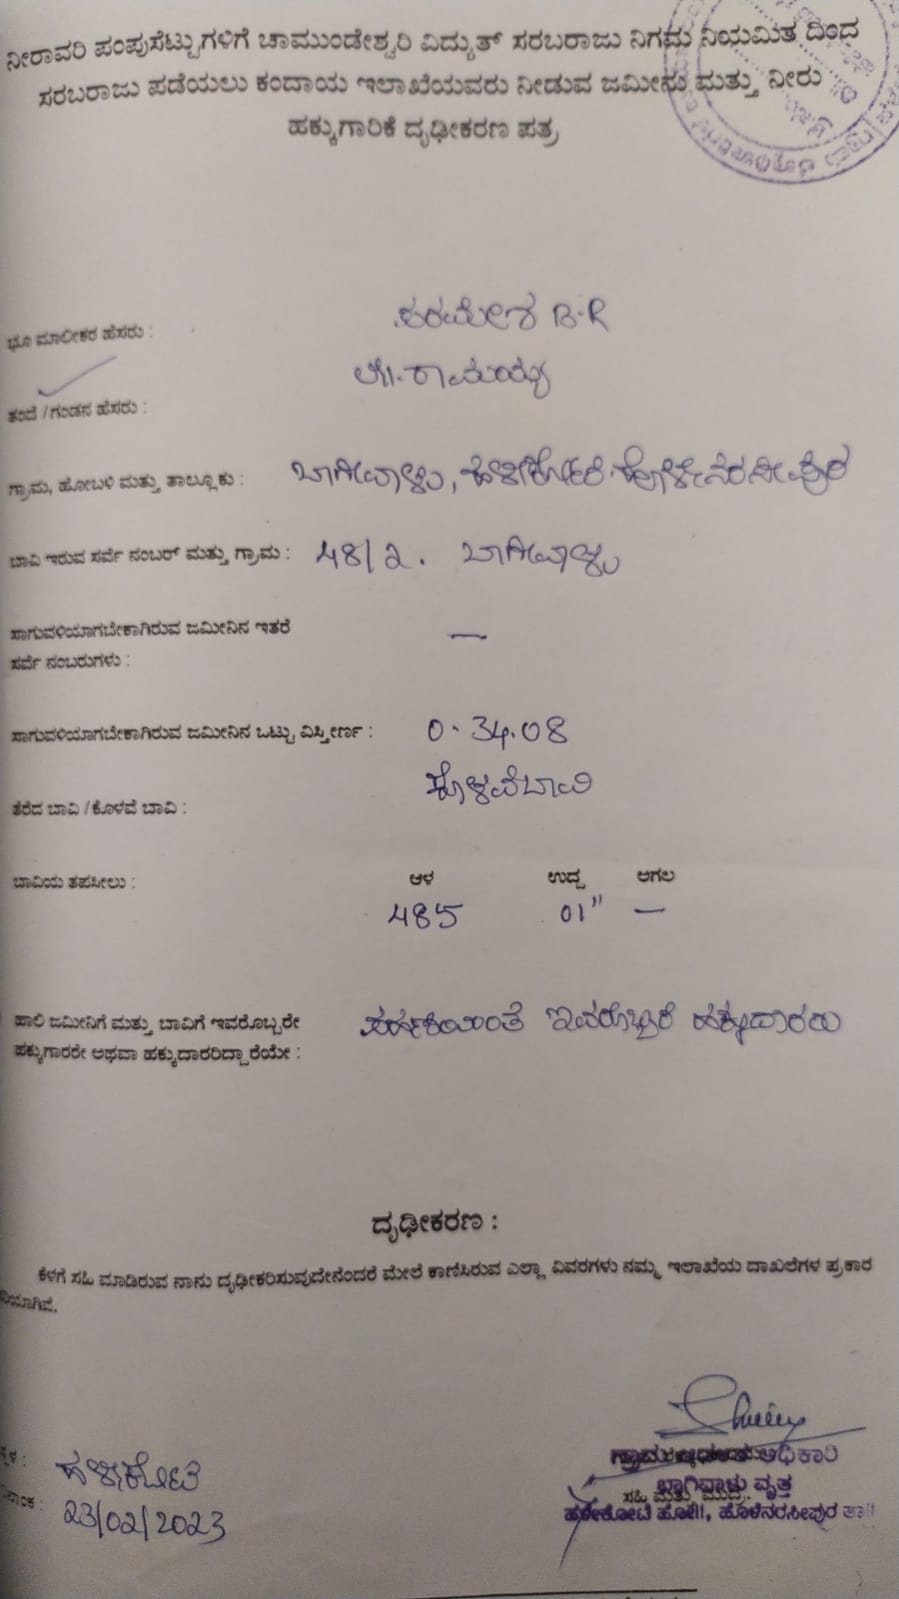 ನೀರಾವರಿ ಪಂಪುಸೆಟ್ಟುಗಳಿಗೆ ಚಾಮುಂಡೇಶ್ವರಿ ವಿದ್ಯುತ್ ಸರಬರಾಜು ನಿಗಮ ನಿಯಮಿತ ದಿಂದ
ಸರಬರಾಜು ಪಡೆಯಲು ಕಂದಾಯ ಇಲಾಖೆಯವರು ನೀಡುವ ಜಮೀನು ಮತ್ತು ನೀರು
ಹಕ್ಕುಗಾರಿಕೆ ದೃಢೀಕರಣ ಪತ್ರ
ಭೂ ಮಾಲೀಕರ ಹೆಸರು : ಪರಮೇಶ B.R
ತಂದೆ / ಗಂಡನ ಹೆಸರು : ರಾಮಯ್ಯ
ಗ್ರಾಮ, ಹೋಬಳಿ ಮತ್ತು ತಾಲ್ಲೂಕು : ಬಾಗಿವಾಳು, ಹಳೇಕೋಟೆ ಹೊಳೇನರಸೀಪುರ
ಬಾವಿ ಇರುವ ಸರ್ವೆ ನಂಬರ್ ಮತ್ತು ಗ್ರಾಮ : 48/2. ಬಾಗಿವಾಳು
ಸಾಗುವಳಿಯಾಗಬೇಕಾಗಿರುವ ಜಮೀನಿನ ಇತರೆ —
ಸರ್ವೆ ನಂಬರುಗಳು :
ಸಾಗುವಳಿಯಾಗಬೇಕಾಗಿರುವ ಜಮೀನಿನ ಒಟ್ಟು ವಿಸ್ತೀರ್ಣ : 0.34.08
ತೆರೆದ ಬಾವಿ / ಕೊಳವೆ ಬಾವಿ : ಕೊಳವೆಬಾವಿ
ಬಾವಿಯ ತಪಸೀಲು : ಆಳ ಉದ್ದ ಅಗಲ
485 01" —
ಹಾಲಿ ಜಮೀನಿಗೆ ಮತ್ತು ಬಾವಿಗೆ ಇವರೊಬ್ಬರೇ ಪಹಣಿಯಂತೆ ಇವರೊಬ್ಬರೆ ಹಕ್ಕುದಾರರು
ಹಕ್ಕುಗಾರರೇ ಅಥವಾ ಹಕ್ಕುದಾರರಿದ್ದಾರೆಯೇ :
ದೃಢೀಕರಣ :
ಕೆಳಗೆ ಸಹಿ ಮಾಡಿರುವ ನಾನು ದೃಢೀಕರಿಸುವುದೇನೆಂದರೆ ಮೇಲೆ ಕಾಣಿಸಿರುವ ಎಲ್ಲಾ ವಿವರಗಳು ನಮ್ಮ ಇಲಾಖೆಯ ದಾಖಲೆಗಳ ಪ್ರಕಾರ
ಯಾಗಿವೆ.
ಗ್ರಾಮ ಅಧಿಕಾರಿ
ಹಳೇಕೋಟೆ ಬಾಗಿವಾಳು ವೃತ್ತ
ಸಹಿ ಮತ್ತು ಮುದ್ರೆ
23/02/2023 ಹಳೇಕೋಟೆ ಹೋ||, ಹೊಳೆನರಸೀಪುರ ತಾ||